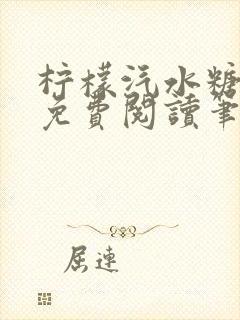 柠檬汽水糖
免費閱讀筆
屈連